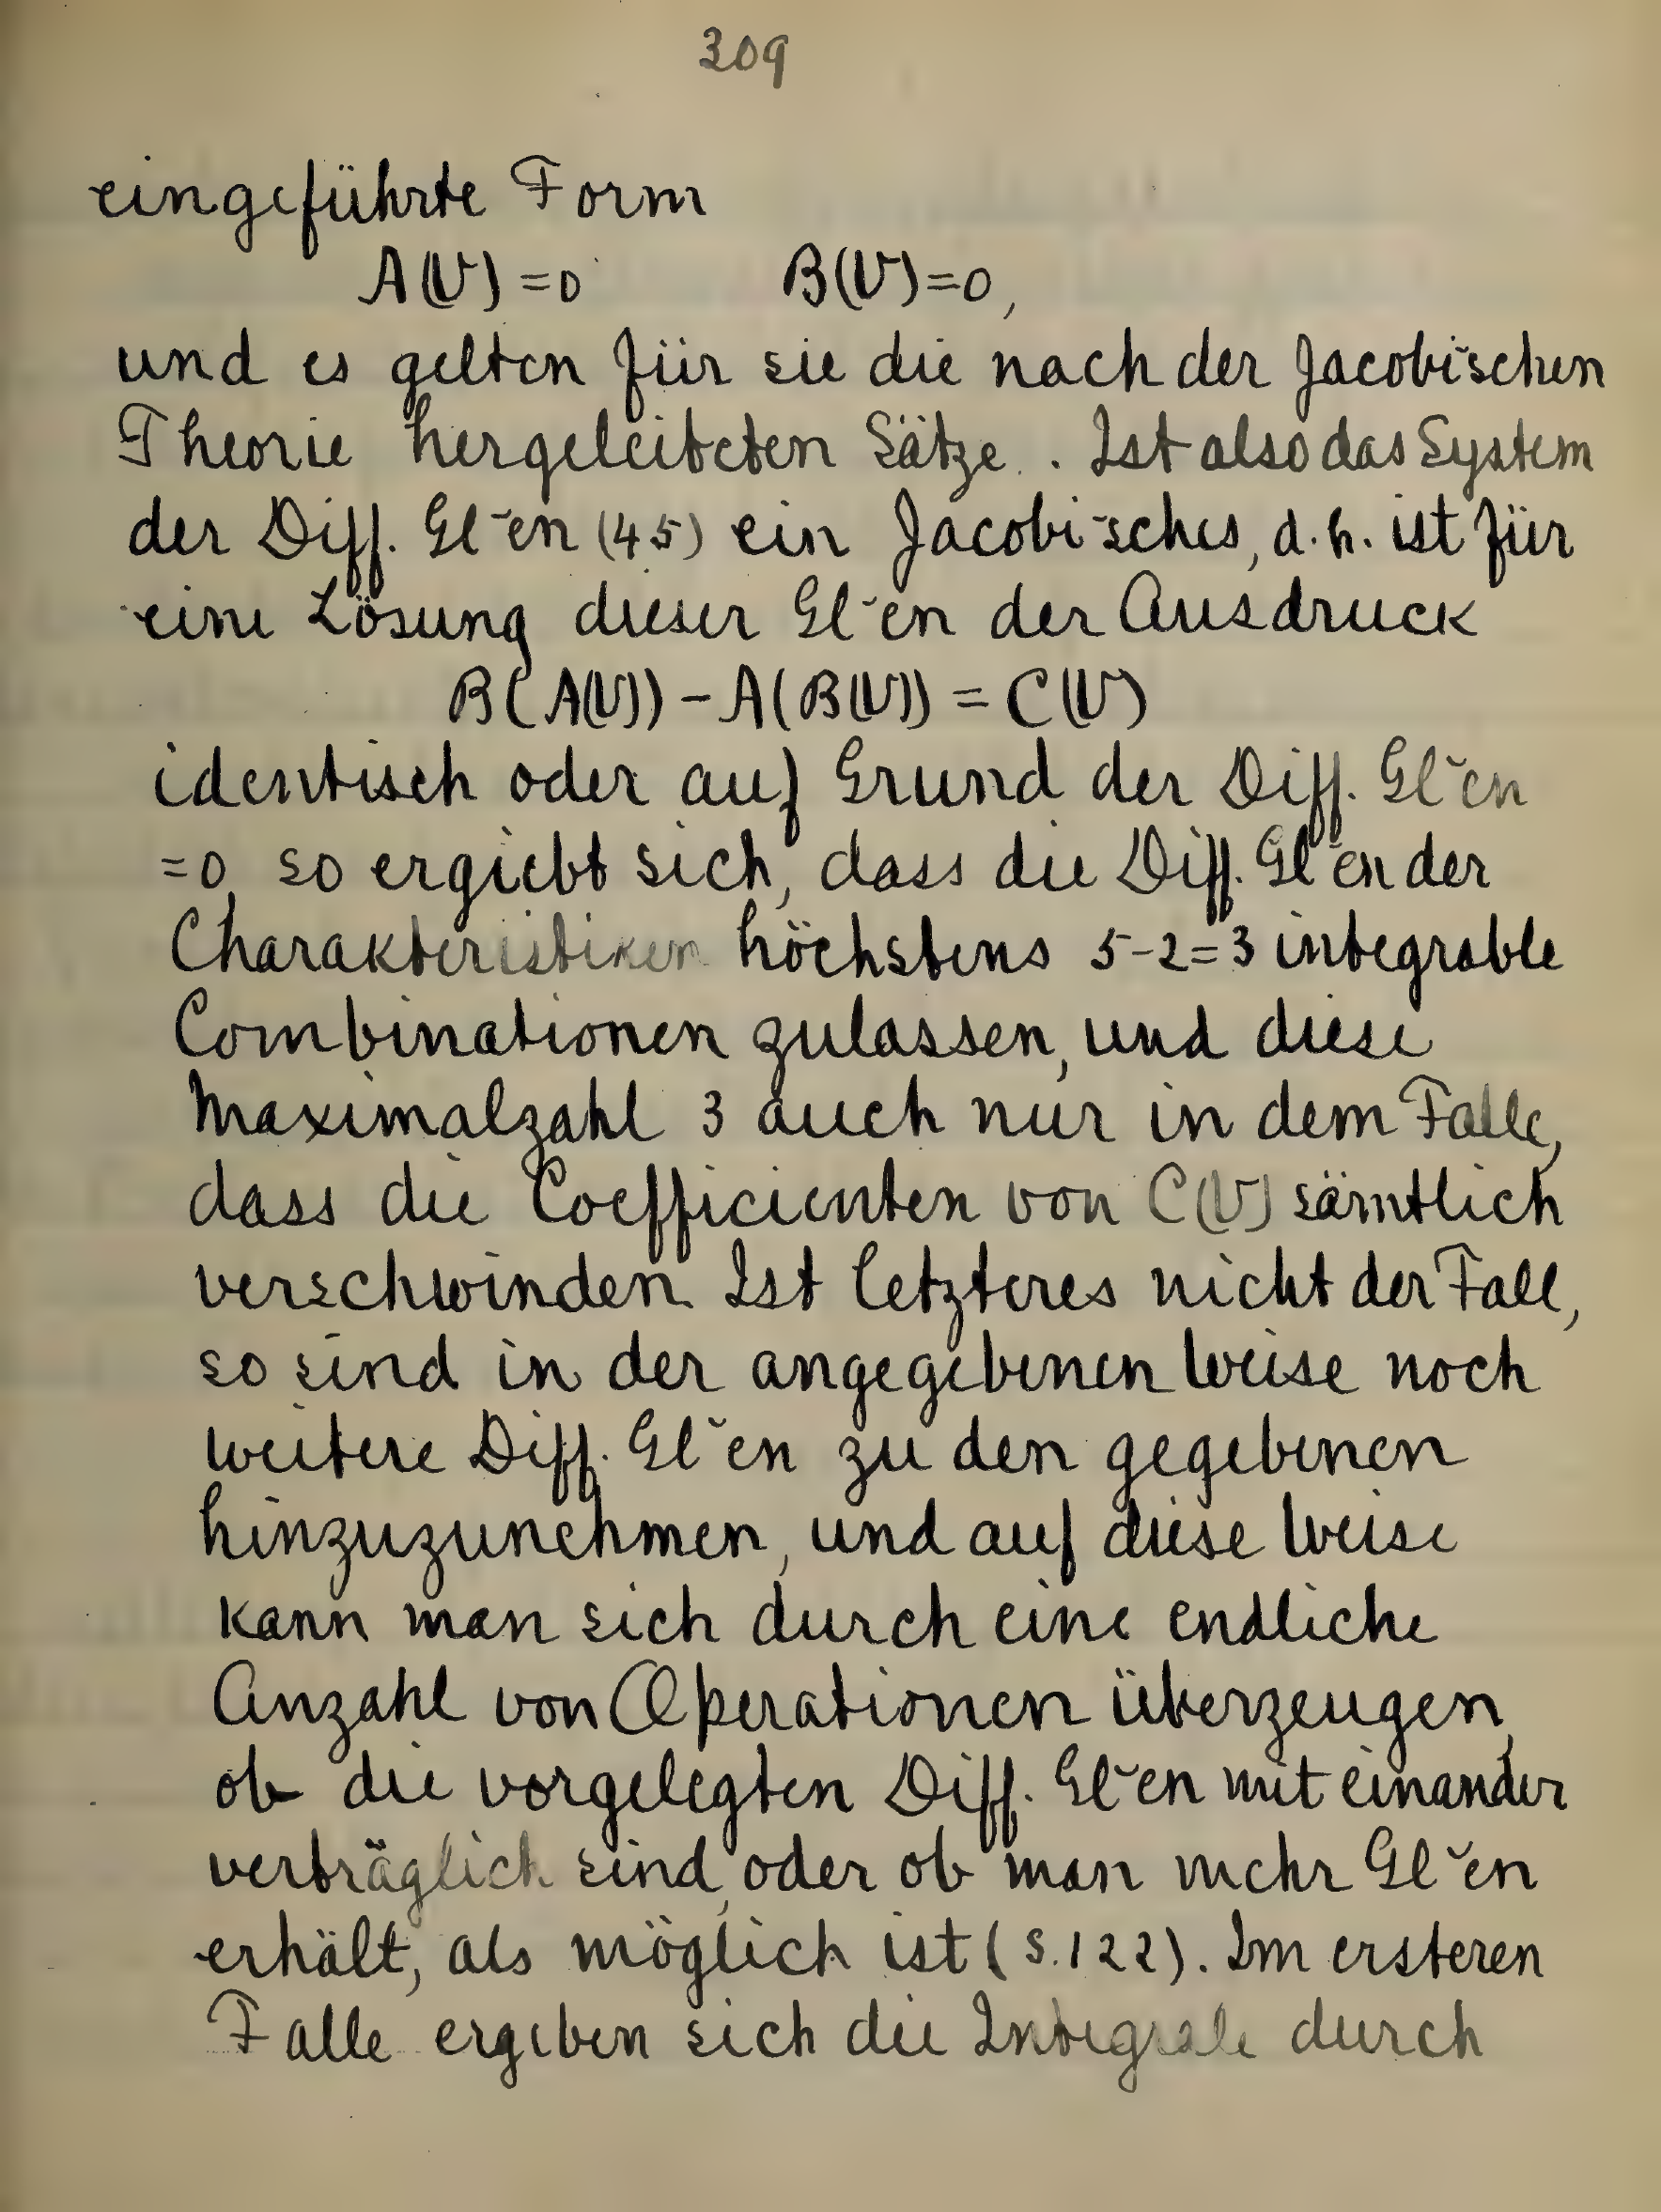 309
eingeführte Form
A(U) = 0 B(U) = 0,
und es gelten für sie die nach der Jacobi'schen
Theorie hergeleiteten Sätze. Ist also das System
der Diff. Gl-en (45) ein Jacobi'sches, d.h. ist für
eine Lösung dieser Gl-en der Ausdruck
B(A(U)) - A(B(U)) = C(U)
identisch oder auf Grund der Diff. Gl-en
=0, so ergiebt sich, dass die Diff. Gl-en der
Charakteristiken höchstens 5-2=3 integrable
Combinationen zulassen, und diese
Maximalzahl 3 auch nur in dem Falle,
dass die Coefficienten von C(U) sämtlich
verschwinden. Ist letzteres nicht der Fall,
so sind in der angegebenen Weise noch
weitere Diff. Gl-en zu den gegebenen
hinzuzunehmen, und auf diese Weise
kann man sich durch eine endliche
Anzahl von Operationen überzeugen,
ob die vorgelegten Diff. Gl-en mit einander
verträglich sind, oder ob man mehr Gl-en
erhält, als möglich ist (S. 122). Im ersteren
Falle ergeben sich die Integrale durch